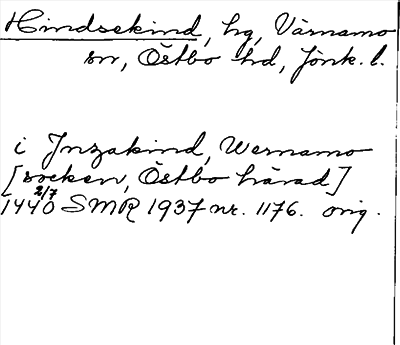 Hindsekind, hg, Värnamo
sn, Östbo hd, Jönk. l.
i Jnzakind, Wernamo
[socken, Östbo härad]
2/7
1440 SMR 1937 nr. 1176. orig.